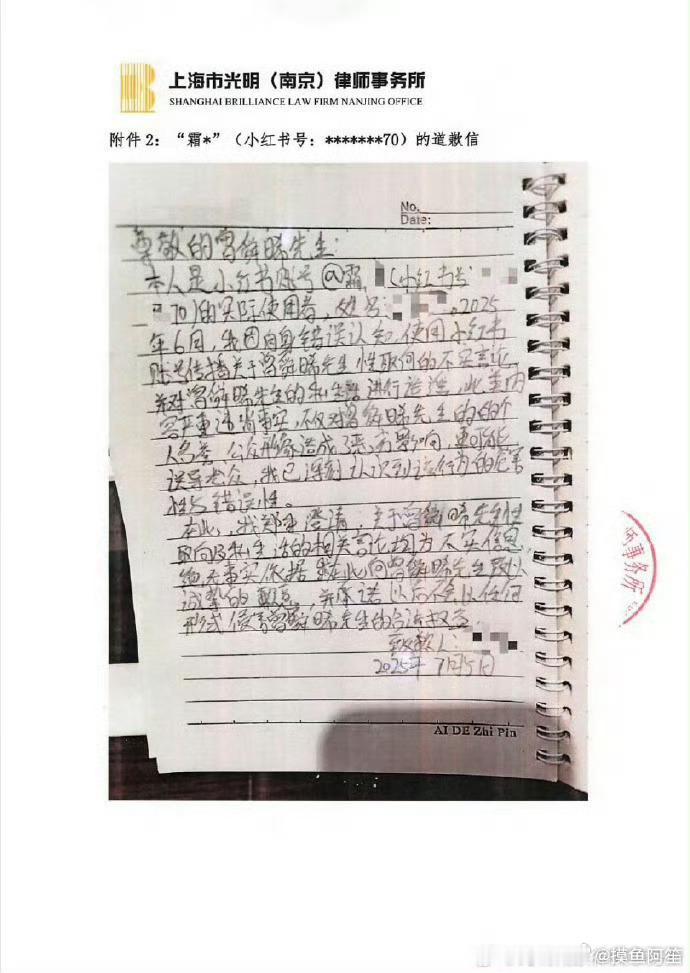 上海市光明（南京）律师事务所
SHANGHAI BRILLIANCE LAW FIRM NANJING OFFICE
附件2：“霜*”（小红书号：*******70）的道歉信
No.
Date:
尊敬的曾舜晞先生：
本人是小红书账号@霜（小红书号
70)的实际使用者，姓名：，2025
年6月，我因自身错误认知，使用小红书
账号传播关于曾舜晞先生性取向的不实言论，
并对曾舜晞先生的私生活进行，此类内
容严重违背事实，不仅对曾舜晞先生的个
人名誉、公众形象造成了恶劣影响，更可能
误导公众，我已深刻认识到该行为的危害
性与错误性。
在此，我郑重澄清：关于曾舜晞先生性
取向及私生活的相关言论均为不实信息，
绝无事实依据。在此向曾舜晞先生致以
诚挚的歉意，并承诺以后不会以任何
形式侵害曾舜晞先生的合法权益。
致歉人：
2025年7月5日
AI DE Zhi Pin
师事务所
@摸鱼阿笙